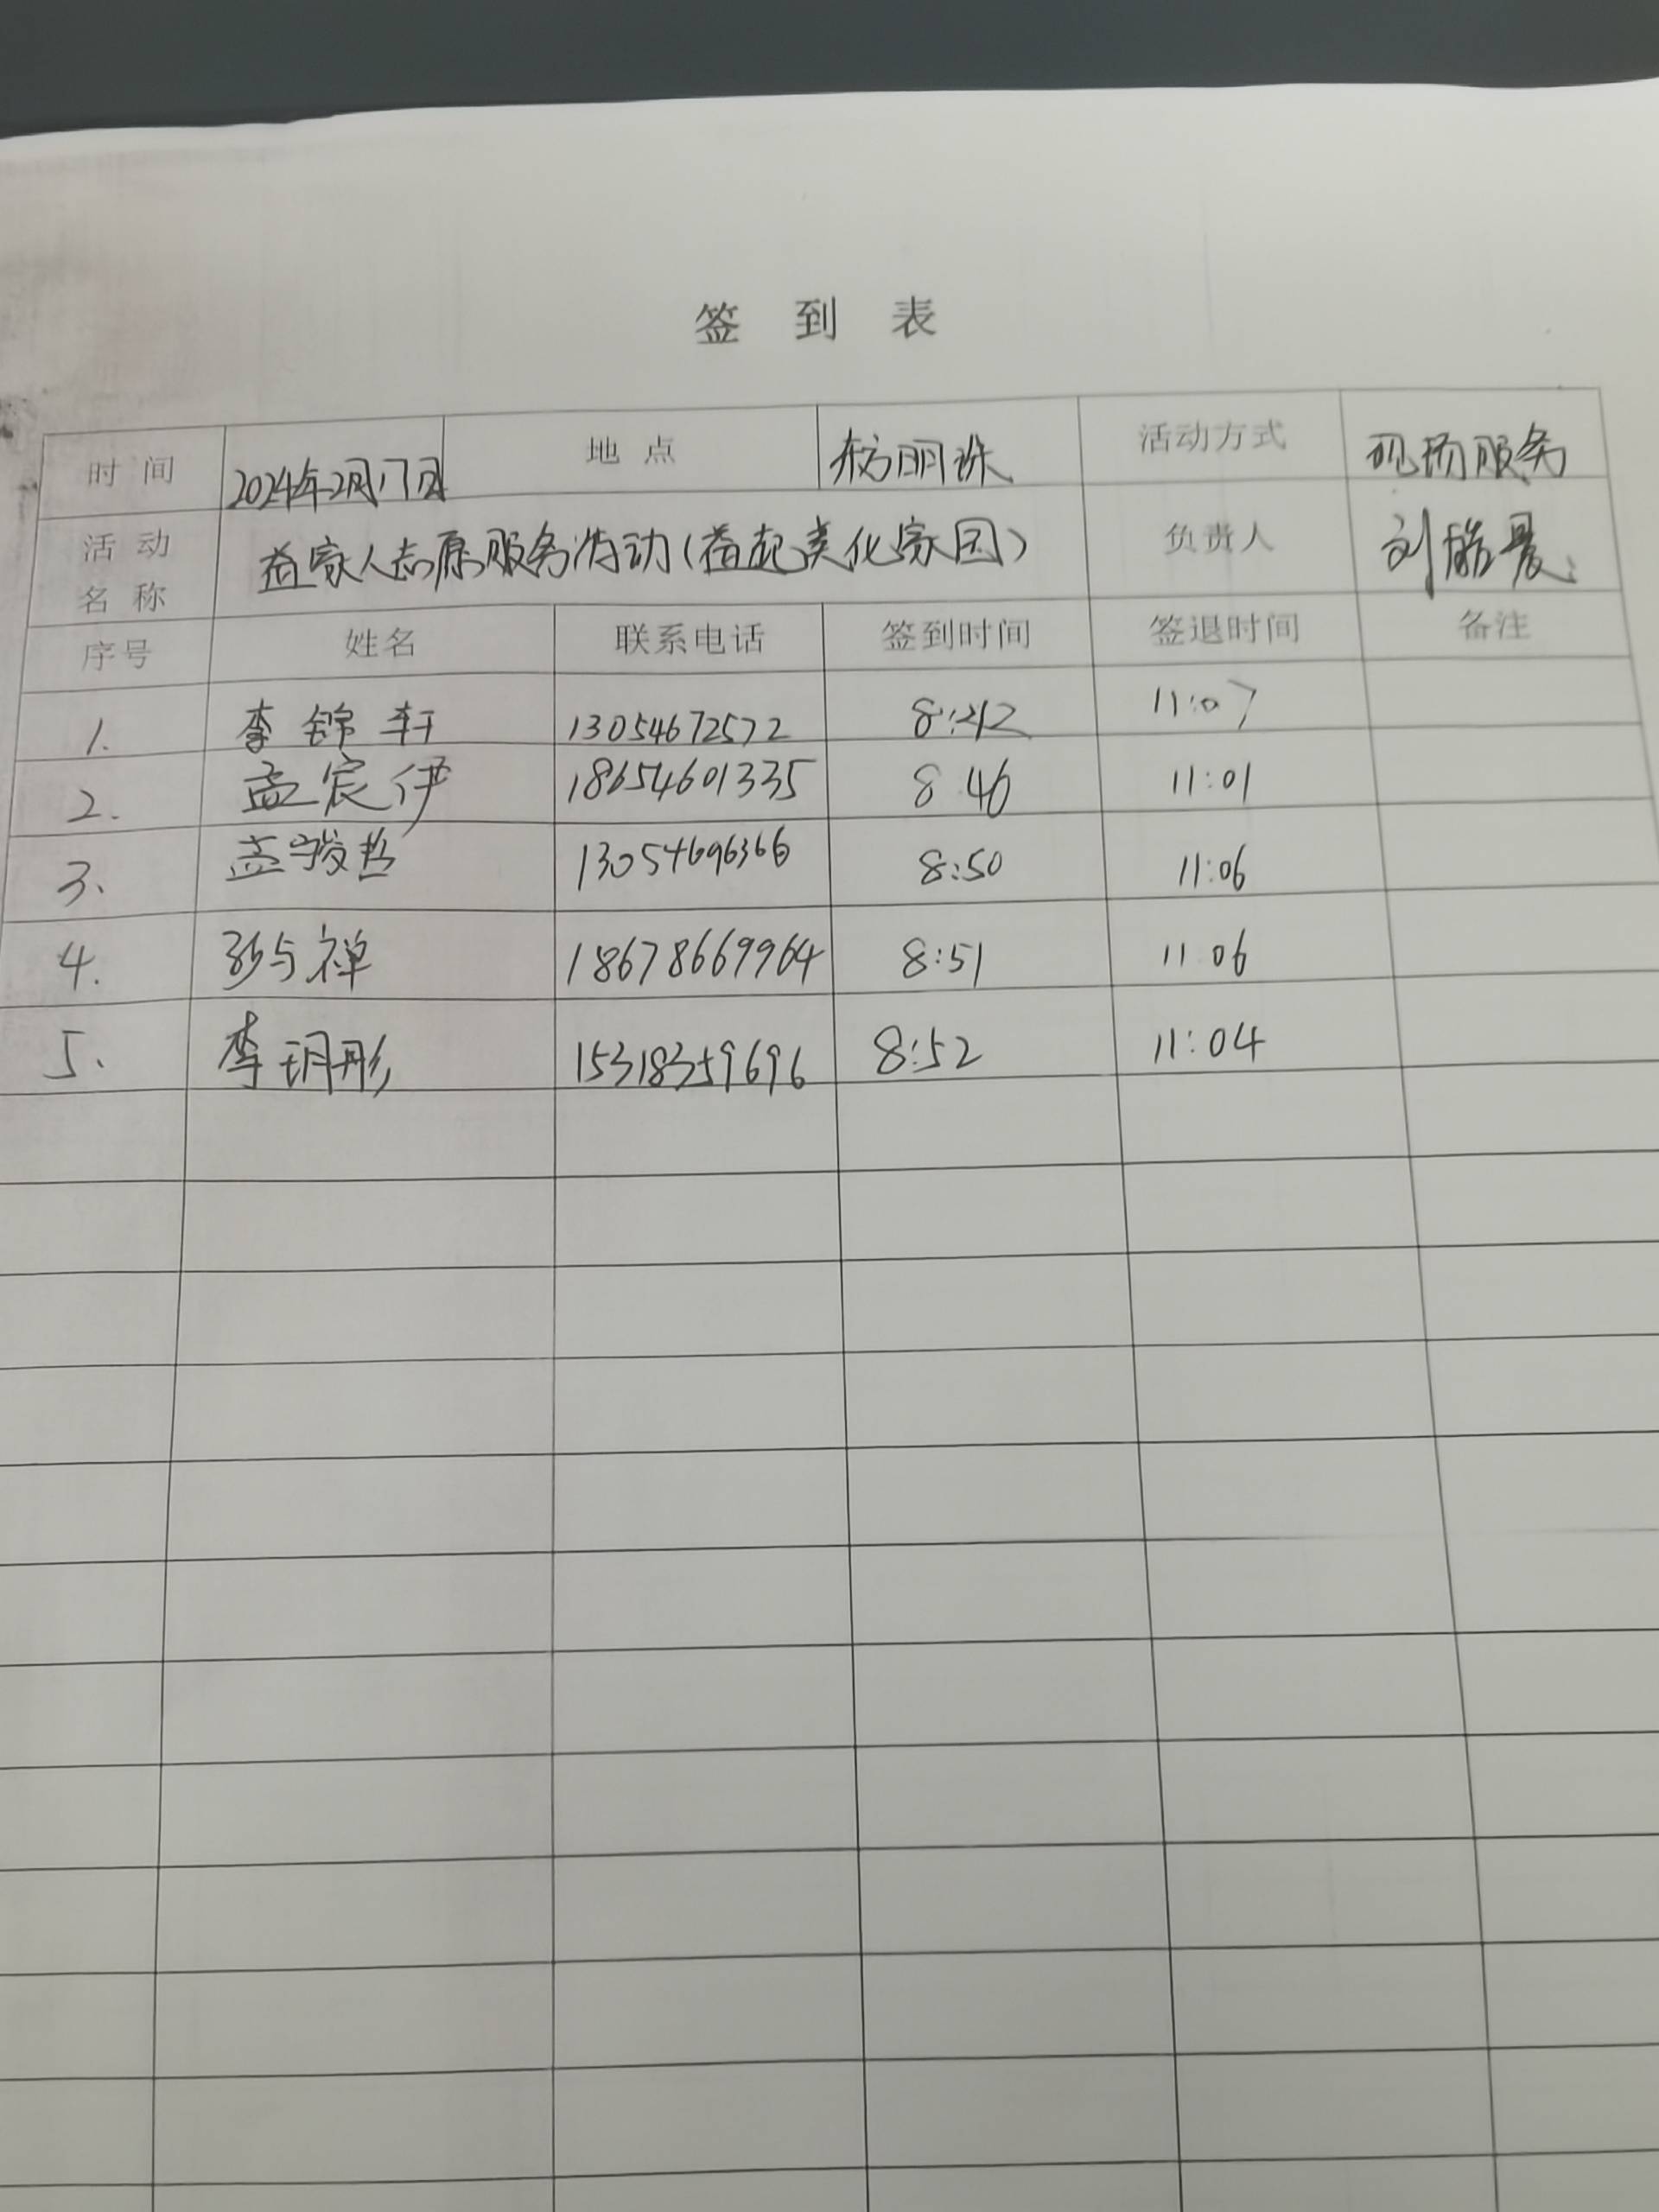 签到表
时间 2024年2月17日 地点 东方明珠 活动方式 现场服务
活动名称 益家人志愿服务活动(益起美化家园) 负责人 刘
序号 姓名 联系电话 签到时间 签退时间 备注
1. 李锦轩 13054672572 8:42 11:07
2. 孟宸伊 18654601335 8 46 11:01
3. 孟骏哲 13054696366 8:50 11:06
4. 禅 18678669964 8:51 11 06
5. 李玥彤 15318359696 8:52 11:04